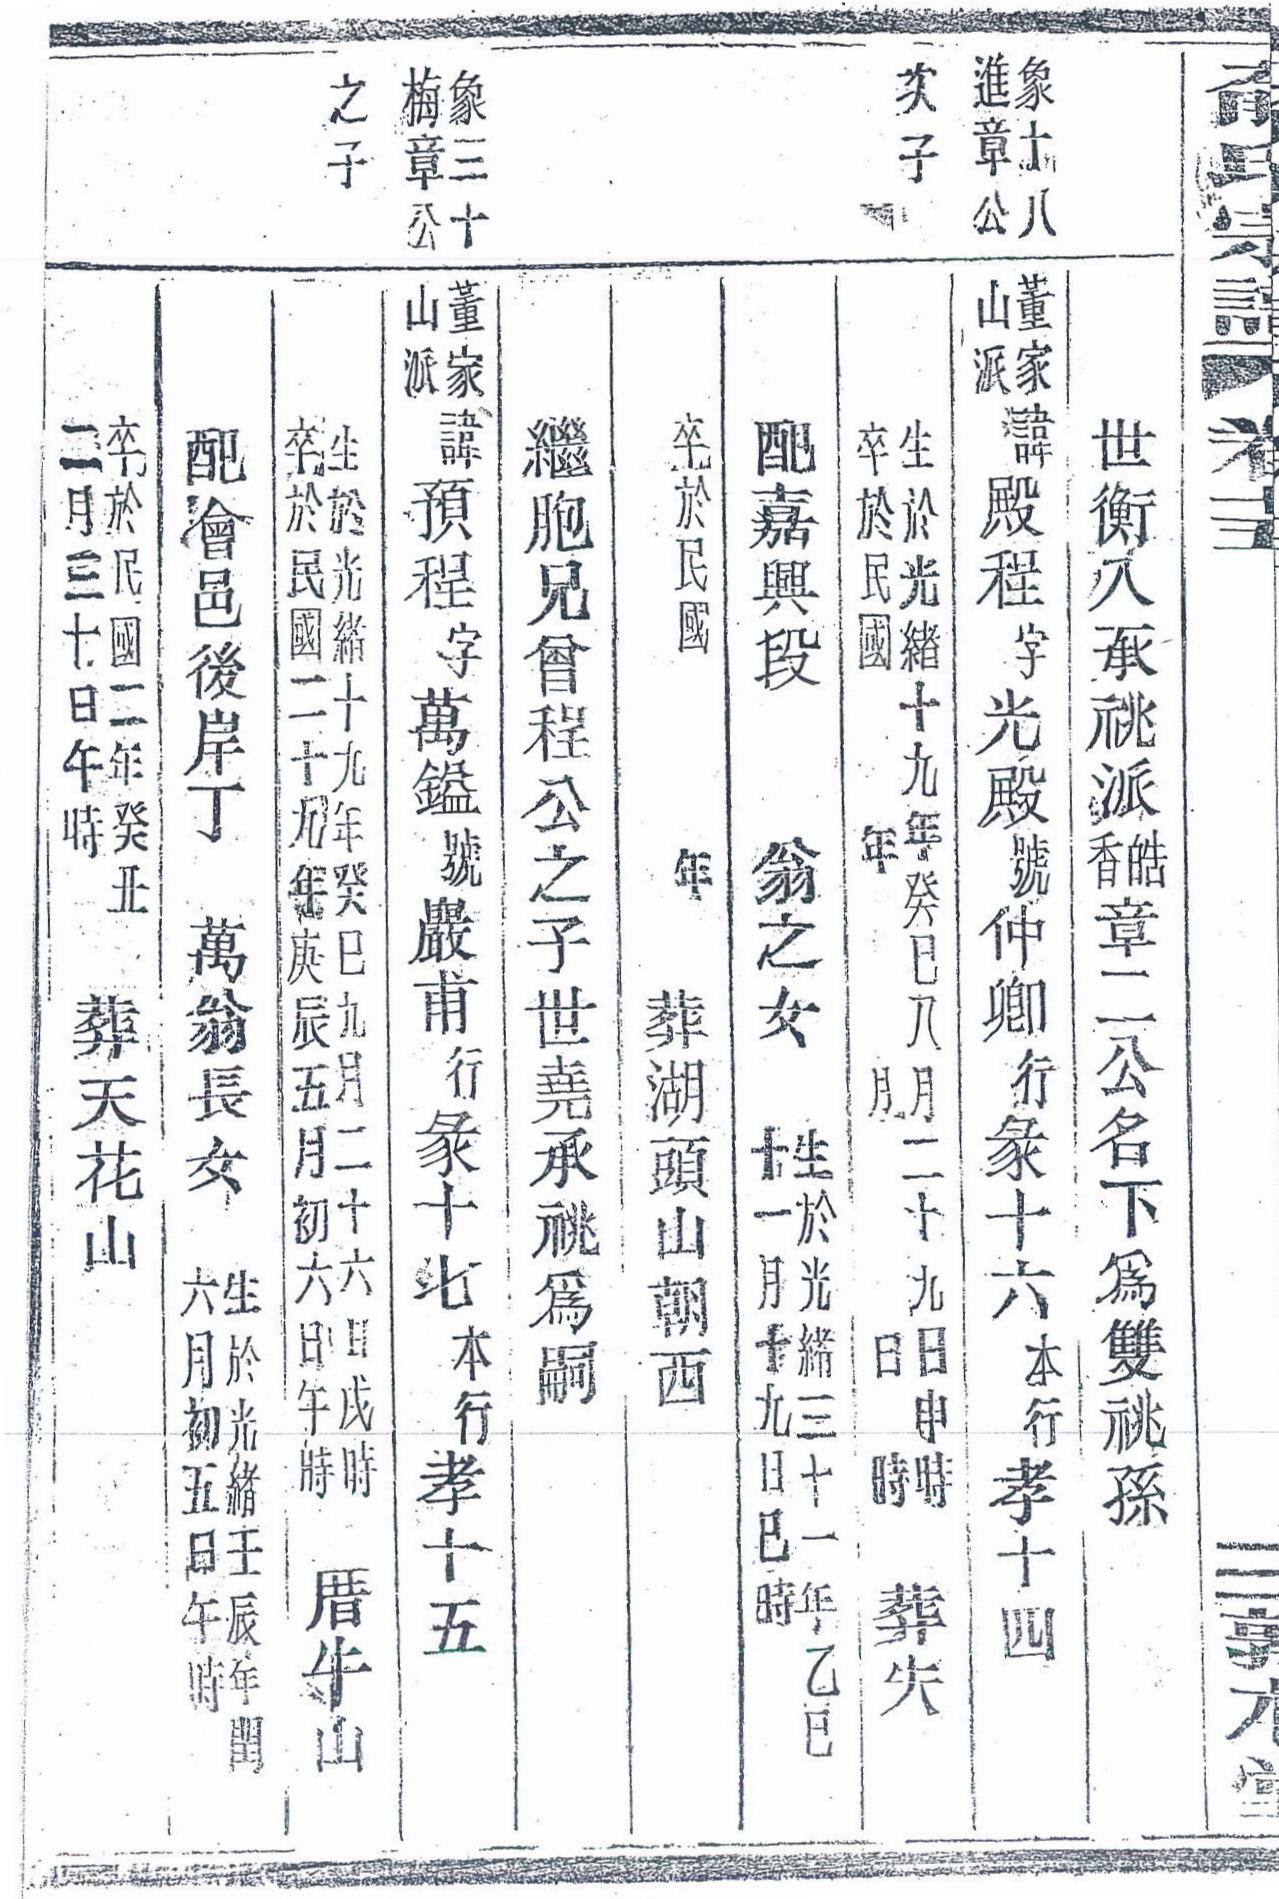 世衡入承祧派皓香章二公名下為雙祧孫
象十八
進章公
次子
董家
山派
諱殿程字光殿號仲卿行彖十六本行孝十四
生於光緒十九年癸巳八月二十九日申時
卒於民國 年 月 日 時
葬失
配嘉興段 翁之女
生於光緒三十一年乙巳
十一月十九日巳時
卒於民國 年 葬湖頭山朝西
繼胞兄曾程公之子世堯承祧為嗣
象三十
梅章公
之子
董家
山派
諱預程字萬鎰號嚴甫行彖十七本行孝十五
生於光緒十九年癸巳九月二十六日戌時
卒於民國二十九年庚辰五月初六日午時
厝牛山
配澮邑後岸丁 萬翁長女
生於光緒壬辰年閏
六月初五日午時
卒於民國二年癸丑
二月三十日午時
葬天花山